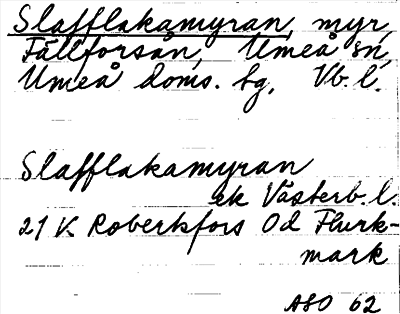 Slafflakamyran, myr,
Fällforsån, Umeå sn,
Umeå doms. sg, Vb. l.
Slafflakamyran
ek Västerb. l.
21 K Robertsfors Od Flurk-
mark
ASO 62